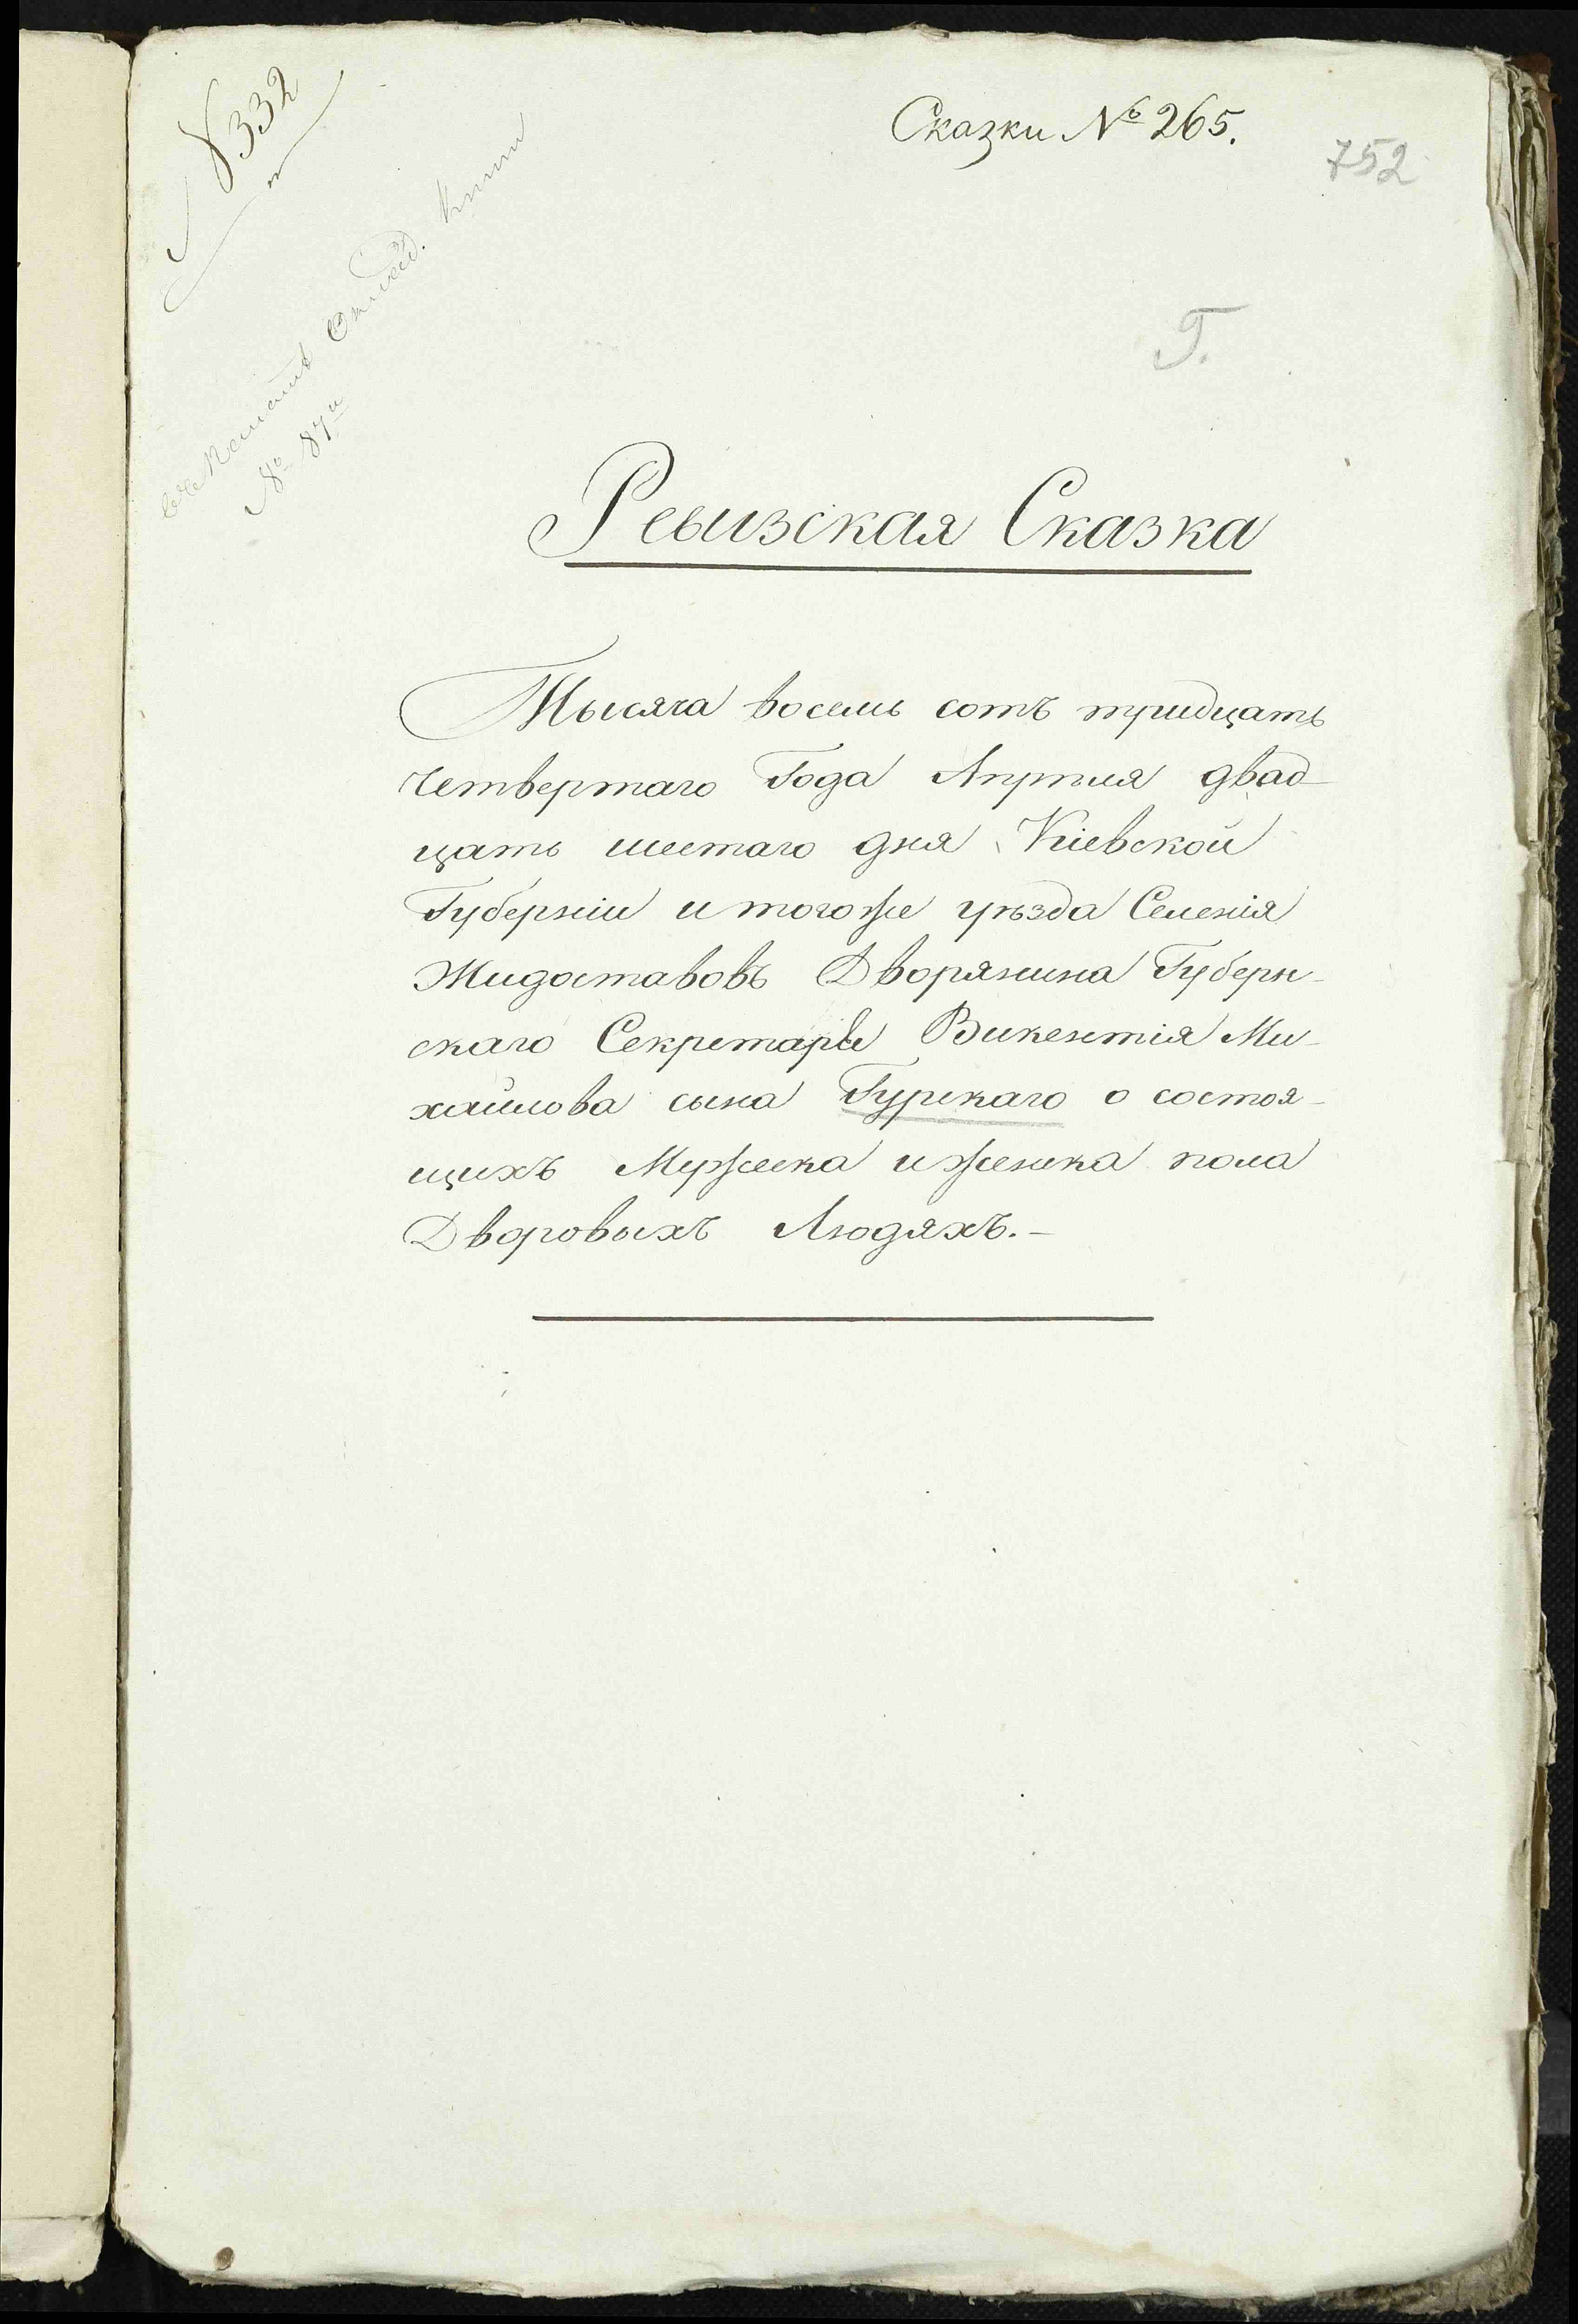 № 332
Сказки № 265.
752
Г.
№ 87
Ревизская Сказка
Тысяча восемь сотъ тридцать
четвертаго Года Апрѣля двад-
цать шестаго дня Кіевской
Губерніи и тогоже уѣзда Селенія
Жидоставовъ Дворянина Губерн-
скаго Секретаря Викентія Ми-
хайлова сына Гурскаго о состоя-
щихъ Мужеска и женска пола
Дворовыхъ Людяхъ.-